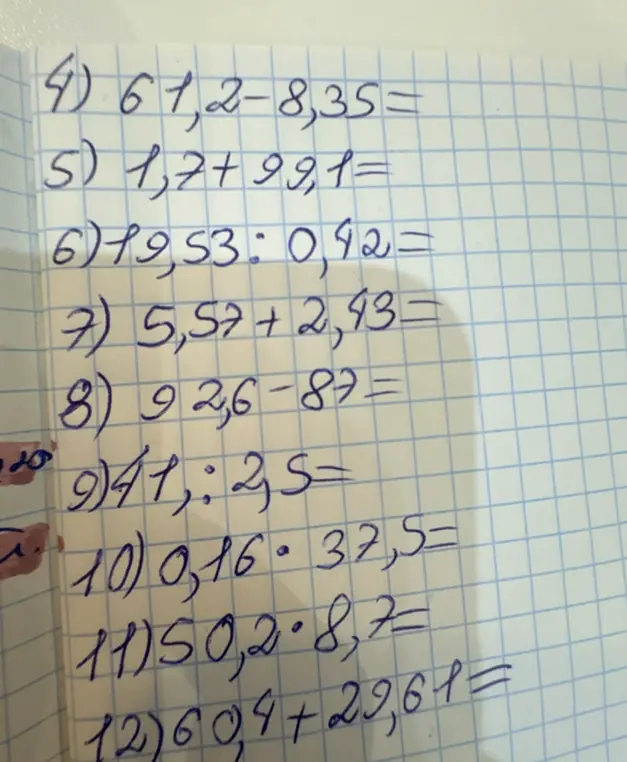 4) 61,2-8,35=
5) 1,7+99,1=
6) 19,53:0,42=
7) 5,57+2,43=
8) 92,6-87=
9) 41,:2,5=
10) 0,16·37,5=
11) 50,2·8,7=
12) 60,4+29,61=